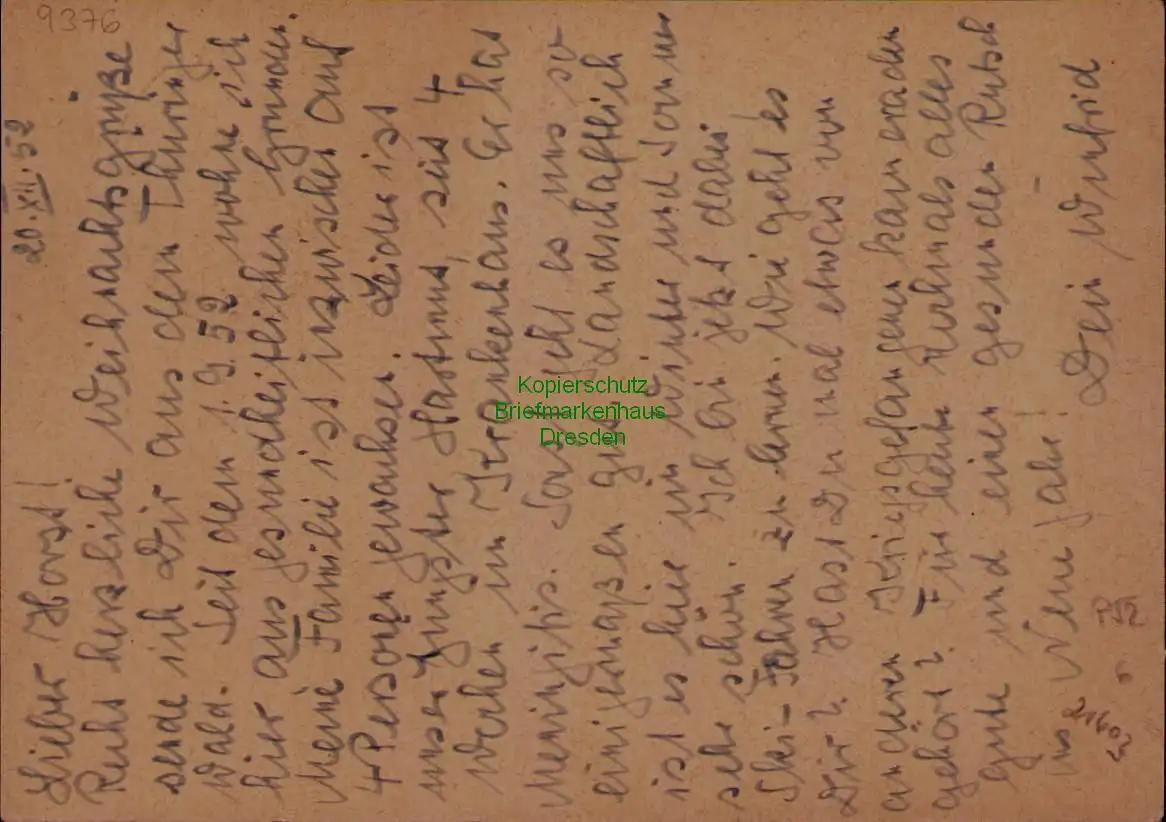 9376
20.XII.52
Lieber Horst!
Recht herzliche Weihnachtsgrüße
sende ich Dir aus dem Thüringer
Wald. Seit dem 1.9.52 wohne ich
hier aus gesundheitlichen Gründen.
Meine Familie ist inzwischen auf
4 Personen gewachsen. Leider ist
unser Jüngster Hartmut, seit 4
Wochen im Krankenhaus. Er hat
Meningitis. Sonst geht es uns so
einigermaßen gut. Landschaftlich
ist es hier im Winter und Sommer
sehr schön. Ich bin jetzt dabei
Ski-Fahren zu lernen. Wie geht es
Dir? Hast Du mal etwas von
anderen Kriegsgefangenen kameraden
gehört? Für heute nochmals alles
gute und einen gesunden Rutsch
ins Neue Jahr!
Dein Winfrid
21602
Kopierschutz
Briefmarkenhaus
Dresden